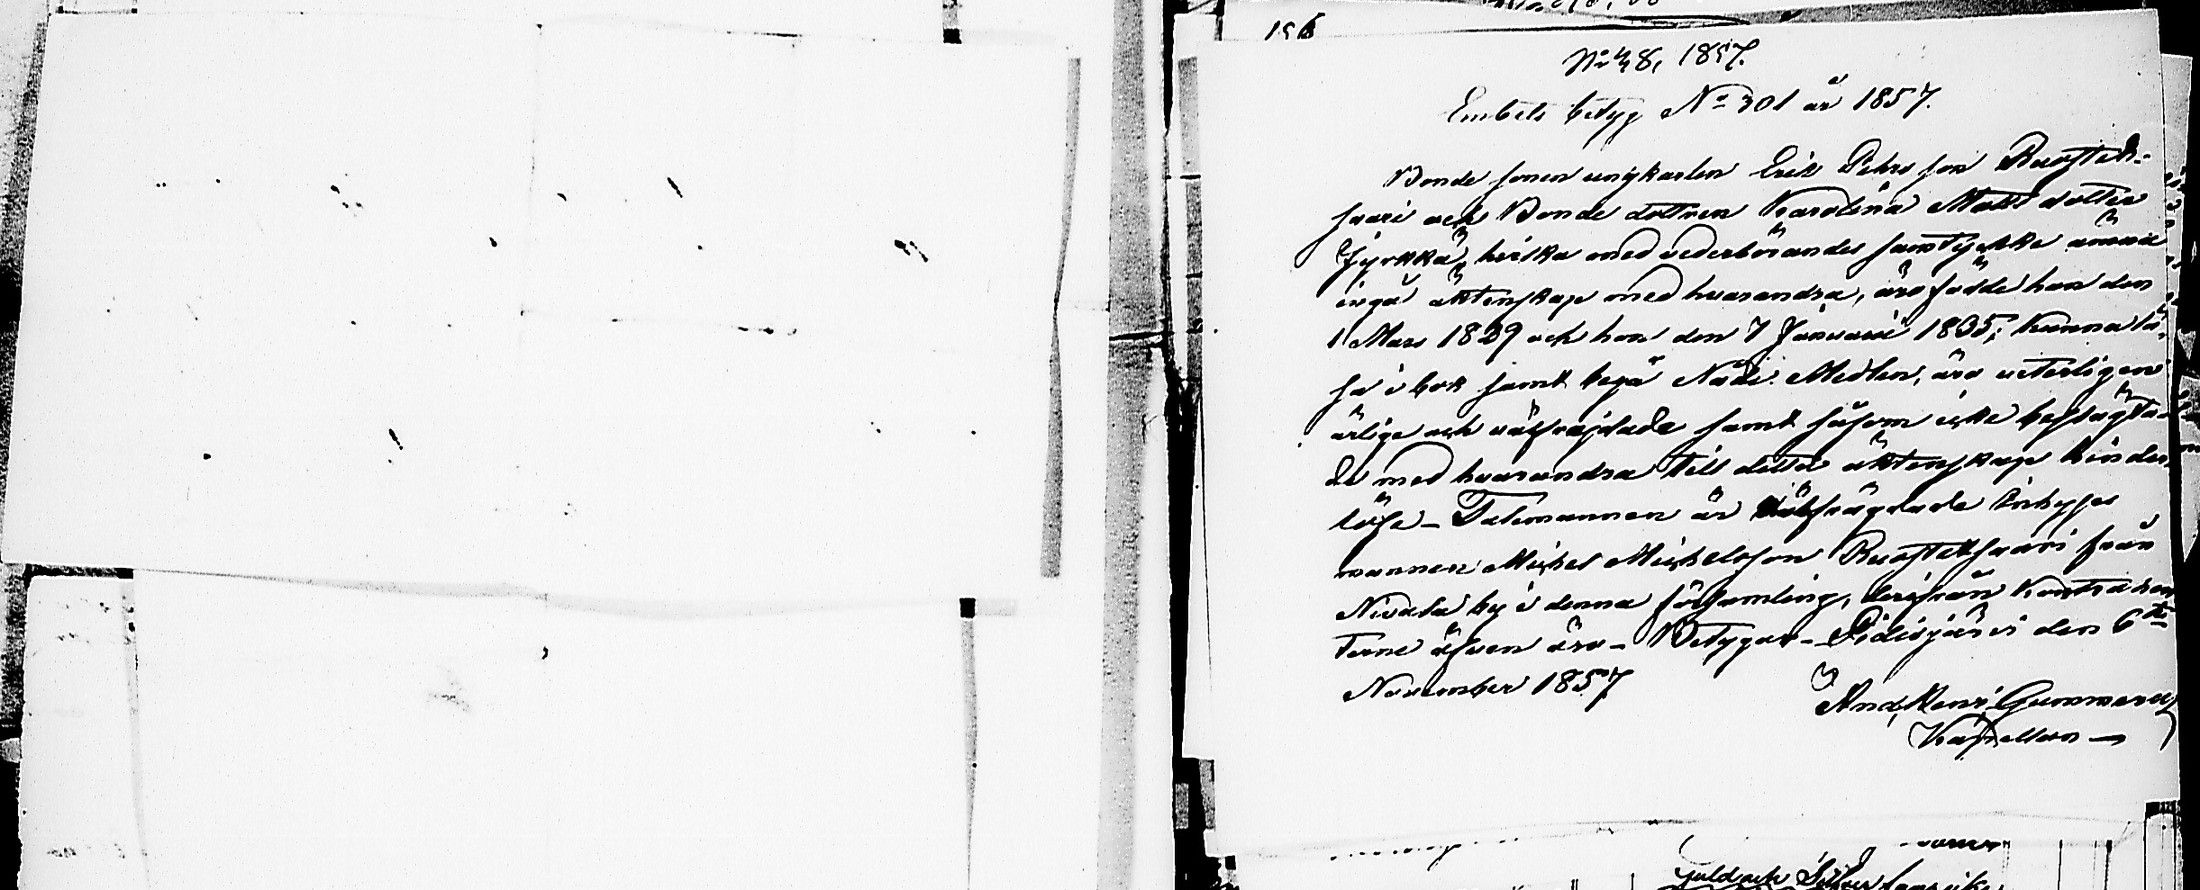 196
No 48, 1857.
Embets betyg No 301 år 1857.
Bonde sonen ungkarlen Erik Pehrsson Ruostet-
saari och Bonde dottren Karolina Matts dotter
Jyrkkä, hvilka med vederbörandes samtycke ämna
ingå äktenskap med hvarandra, äro födde han den
1 Mars 1829 och hon den 7 Januari 1835; kunna lä-
sa i bok samt begå Nådi. Medlen, äro veterligen
ärlige och välfrejdade samt såsom icke beslägta-
de med hvarandra till detta äktenskap hinder-
löse - Talemannen är välfrägdade Inhyses
mannen Michel Michelsson Ruostetsaari från
Nivala by i denna församling, derifrån Kontrahen
terne äfven äro - Betygar - Pidisjärvi den 6te
November 1857
And, Henr, Gummerus
Kapellan
Guld och Silfver